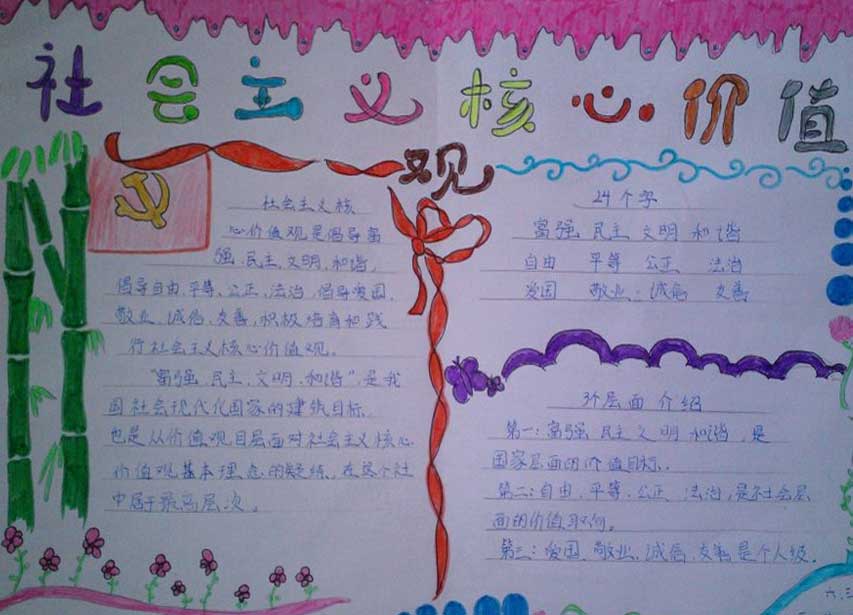 社会主义核心价值
观
社会主义核
心价值观是倡导富
强、民主、文明、和谐,
倡导自由、平等、公正、法治、倡导爱国、
敬业、诚信、友善,积极培育和践
行社会主义核心价值观。
"富强、民主、文明、和谐",是我
国社会现代化国家的建筑目标,
也是从价值观目层面对社会主义核心
价值观基本理念的凝练,在
中居于最高层次。
24个字
富强 民主 文明 和谐
自由 平等 公正 法治
爱国 敬业 诚信 友善
3个层面介绍
第一:富强 民主 文明 和谐,是
国家层面的价值目标.
第二:自由、平等、公正 法治,是社会层
面的价值取向。
第三:爱国、敬业、诚信、友善是个人级.
六.三